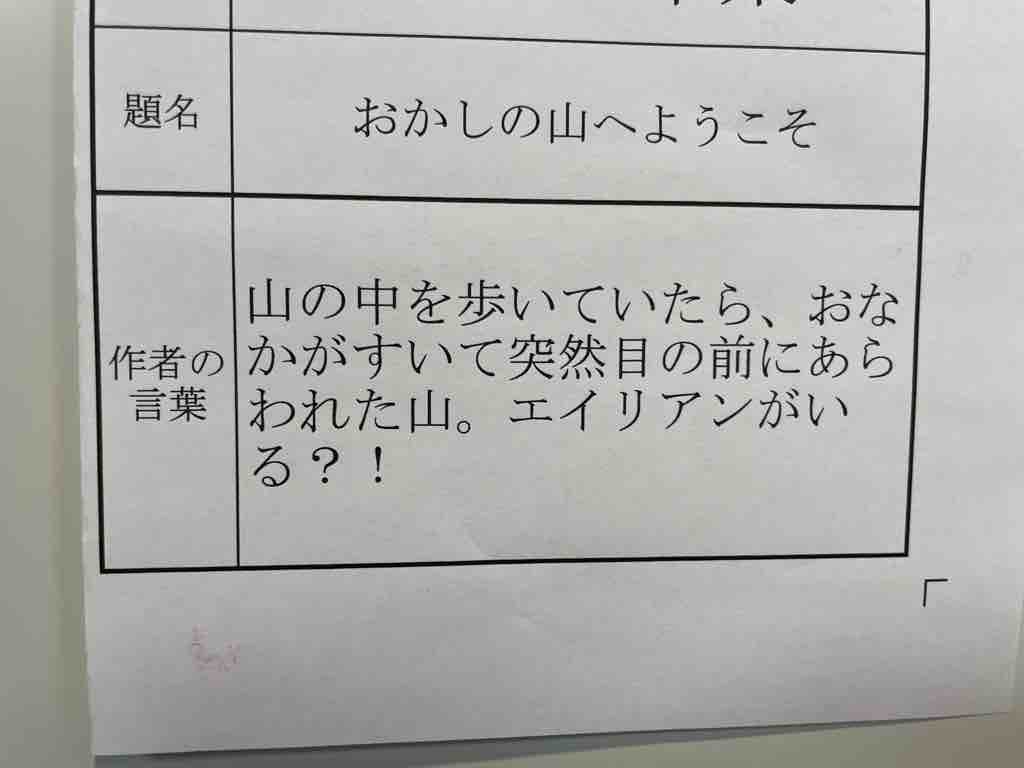 題名
おかしの山へようこそ
作者の
言葉
山の中を歩いていたら、おな
かがすいて突然目の前にあら
われた山。エイリアンがい
る？！